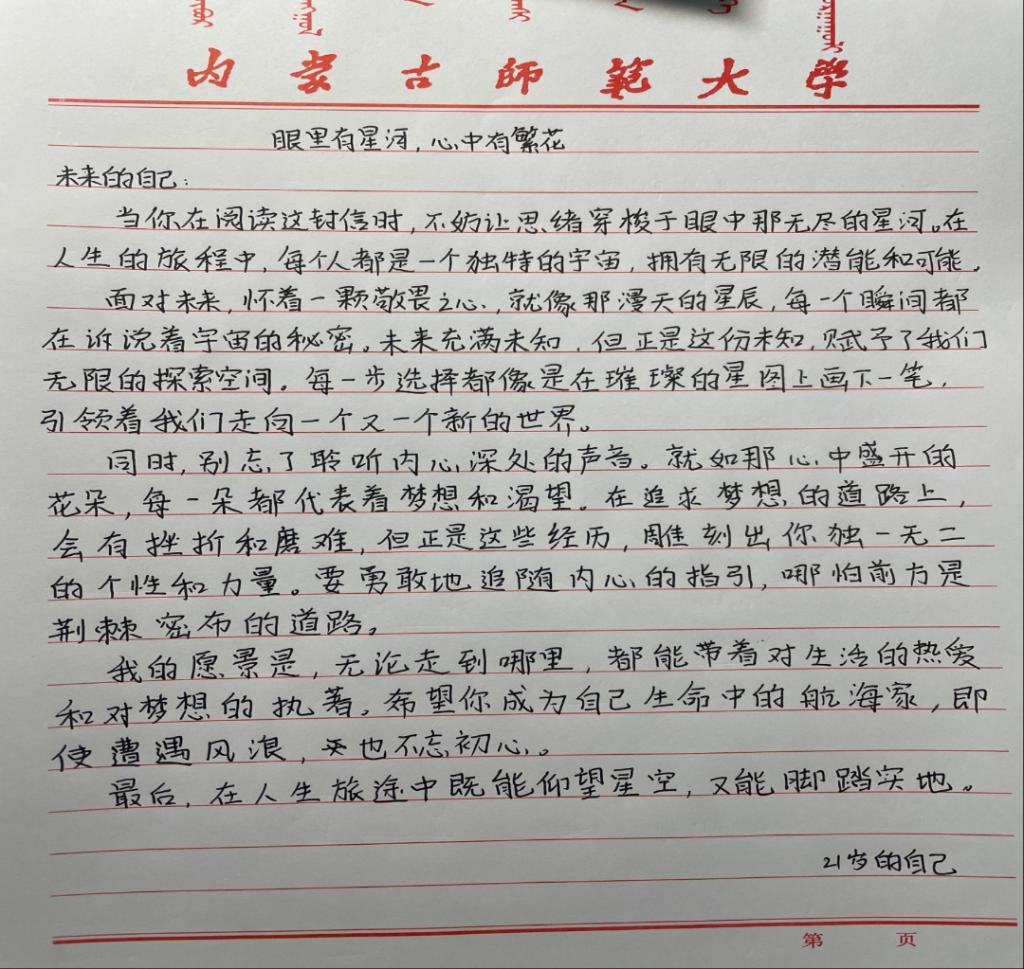 内蒙古師範大学
眼里有星河，心中有繁花
未来的自己：
当你在阅读这封信时，不妨让思绪穿梭于眼中那无尽的星河。在
人生的旅程中，每个人都是一个独特的宇宙，拥有无限的潜能和可能。
面对未来，怀着一颗敬畏之心，就像那漫天的星辰，每一个瞬间都
在诉说着宇宙的秘密。未来充满未知，但正是这份未知，赋予了我们
无限的探索空间。每一步选择都像是在璀璨的星图上画下一笔，
引领着我们走向一个又一个新的世界。
同时，别忘了聆听内心深处的声音。就如那心中盛开的
花朵，每一朵都代表着梦想和渴望。在追求梦想的道路上，
会有挫折和磨难，但正是这些经历，雕刻出你独一无二
的个性和力量。要勇敢地追随内心的指引，哪怕前方是
荆棘密布的道路。
我的愿景是，无论走到哪里，都能带着对生活的热爱
和对梦想的执着。希望你成为自己生命中的航海家，即
使遭遇风浪，也不忘初心。
最后，在人生旅途中既能仰望星空，又能脚踏实地。
21岁的自己
第 页